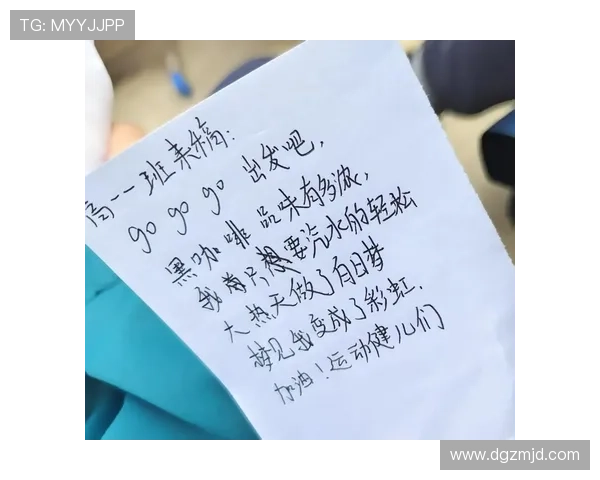 TG: MYYJJPP
高一一班来稿:
go go go 出发吧,
黑咖啡品味有多浓,
我只想要汽水的轻松
大热天做了白日梦
梦见我变成了彩虹.
加油!运动健儿们
www.dgzmjd.com